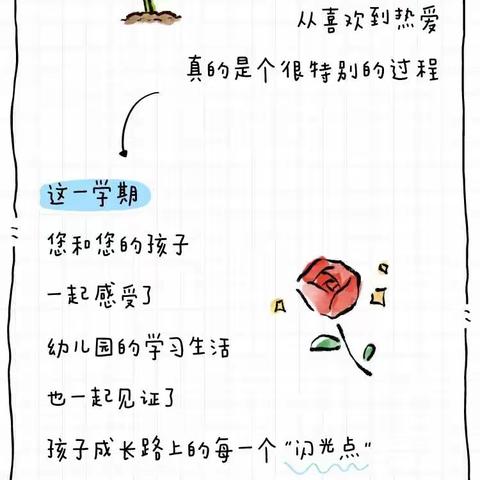 从喜欢到热爱
真的是个很特别的过程
这一学期
您和您的孩子
一起感受了
幼儿园的学习生活
也一起见证了
孩子成长路上的每一个“闪光点”